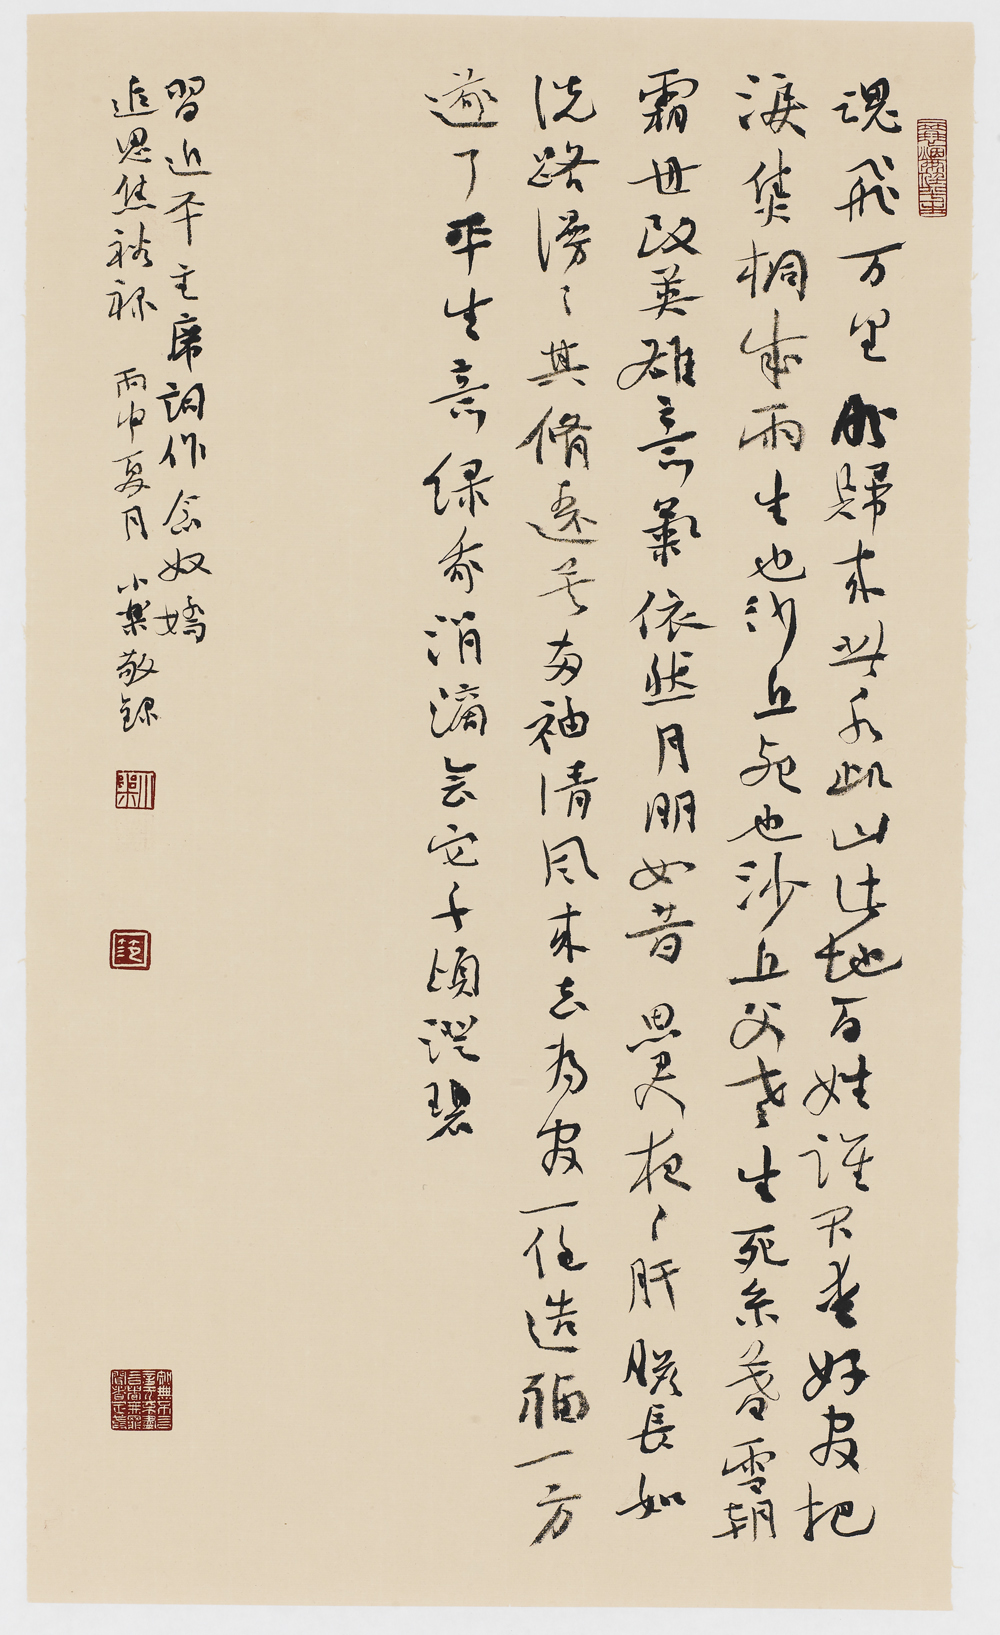 魂飛万里盼歸来此水此山此地百姓誰不爱好官把
淚焦桐成雨生也沙丘死也沙丘父老生死系暮雪朝
霜毋改英雄意氣依然月明如昔思君夜々肝膽長如
洗路漫々其脩遠矣两袖清风来去为官一任造福一方
遂了平生意绿我涓滴会它千頃澄碧
習近平主席詞作念奴嬌
追思焦裕禄 丙申夏月 小樂敬録
小樂